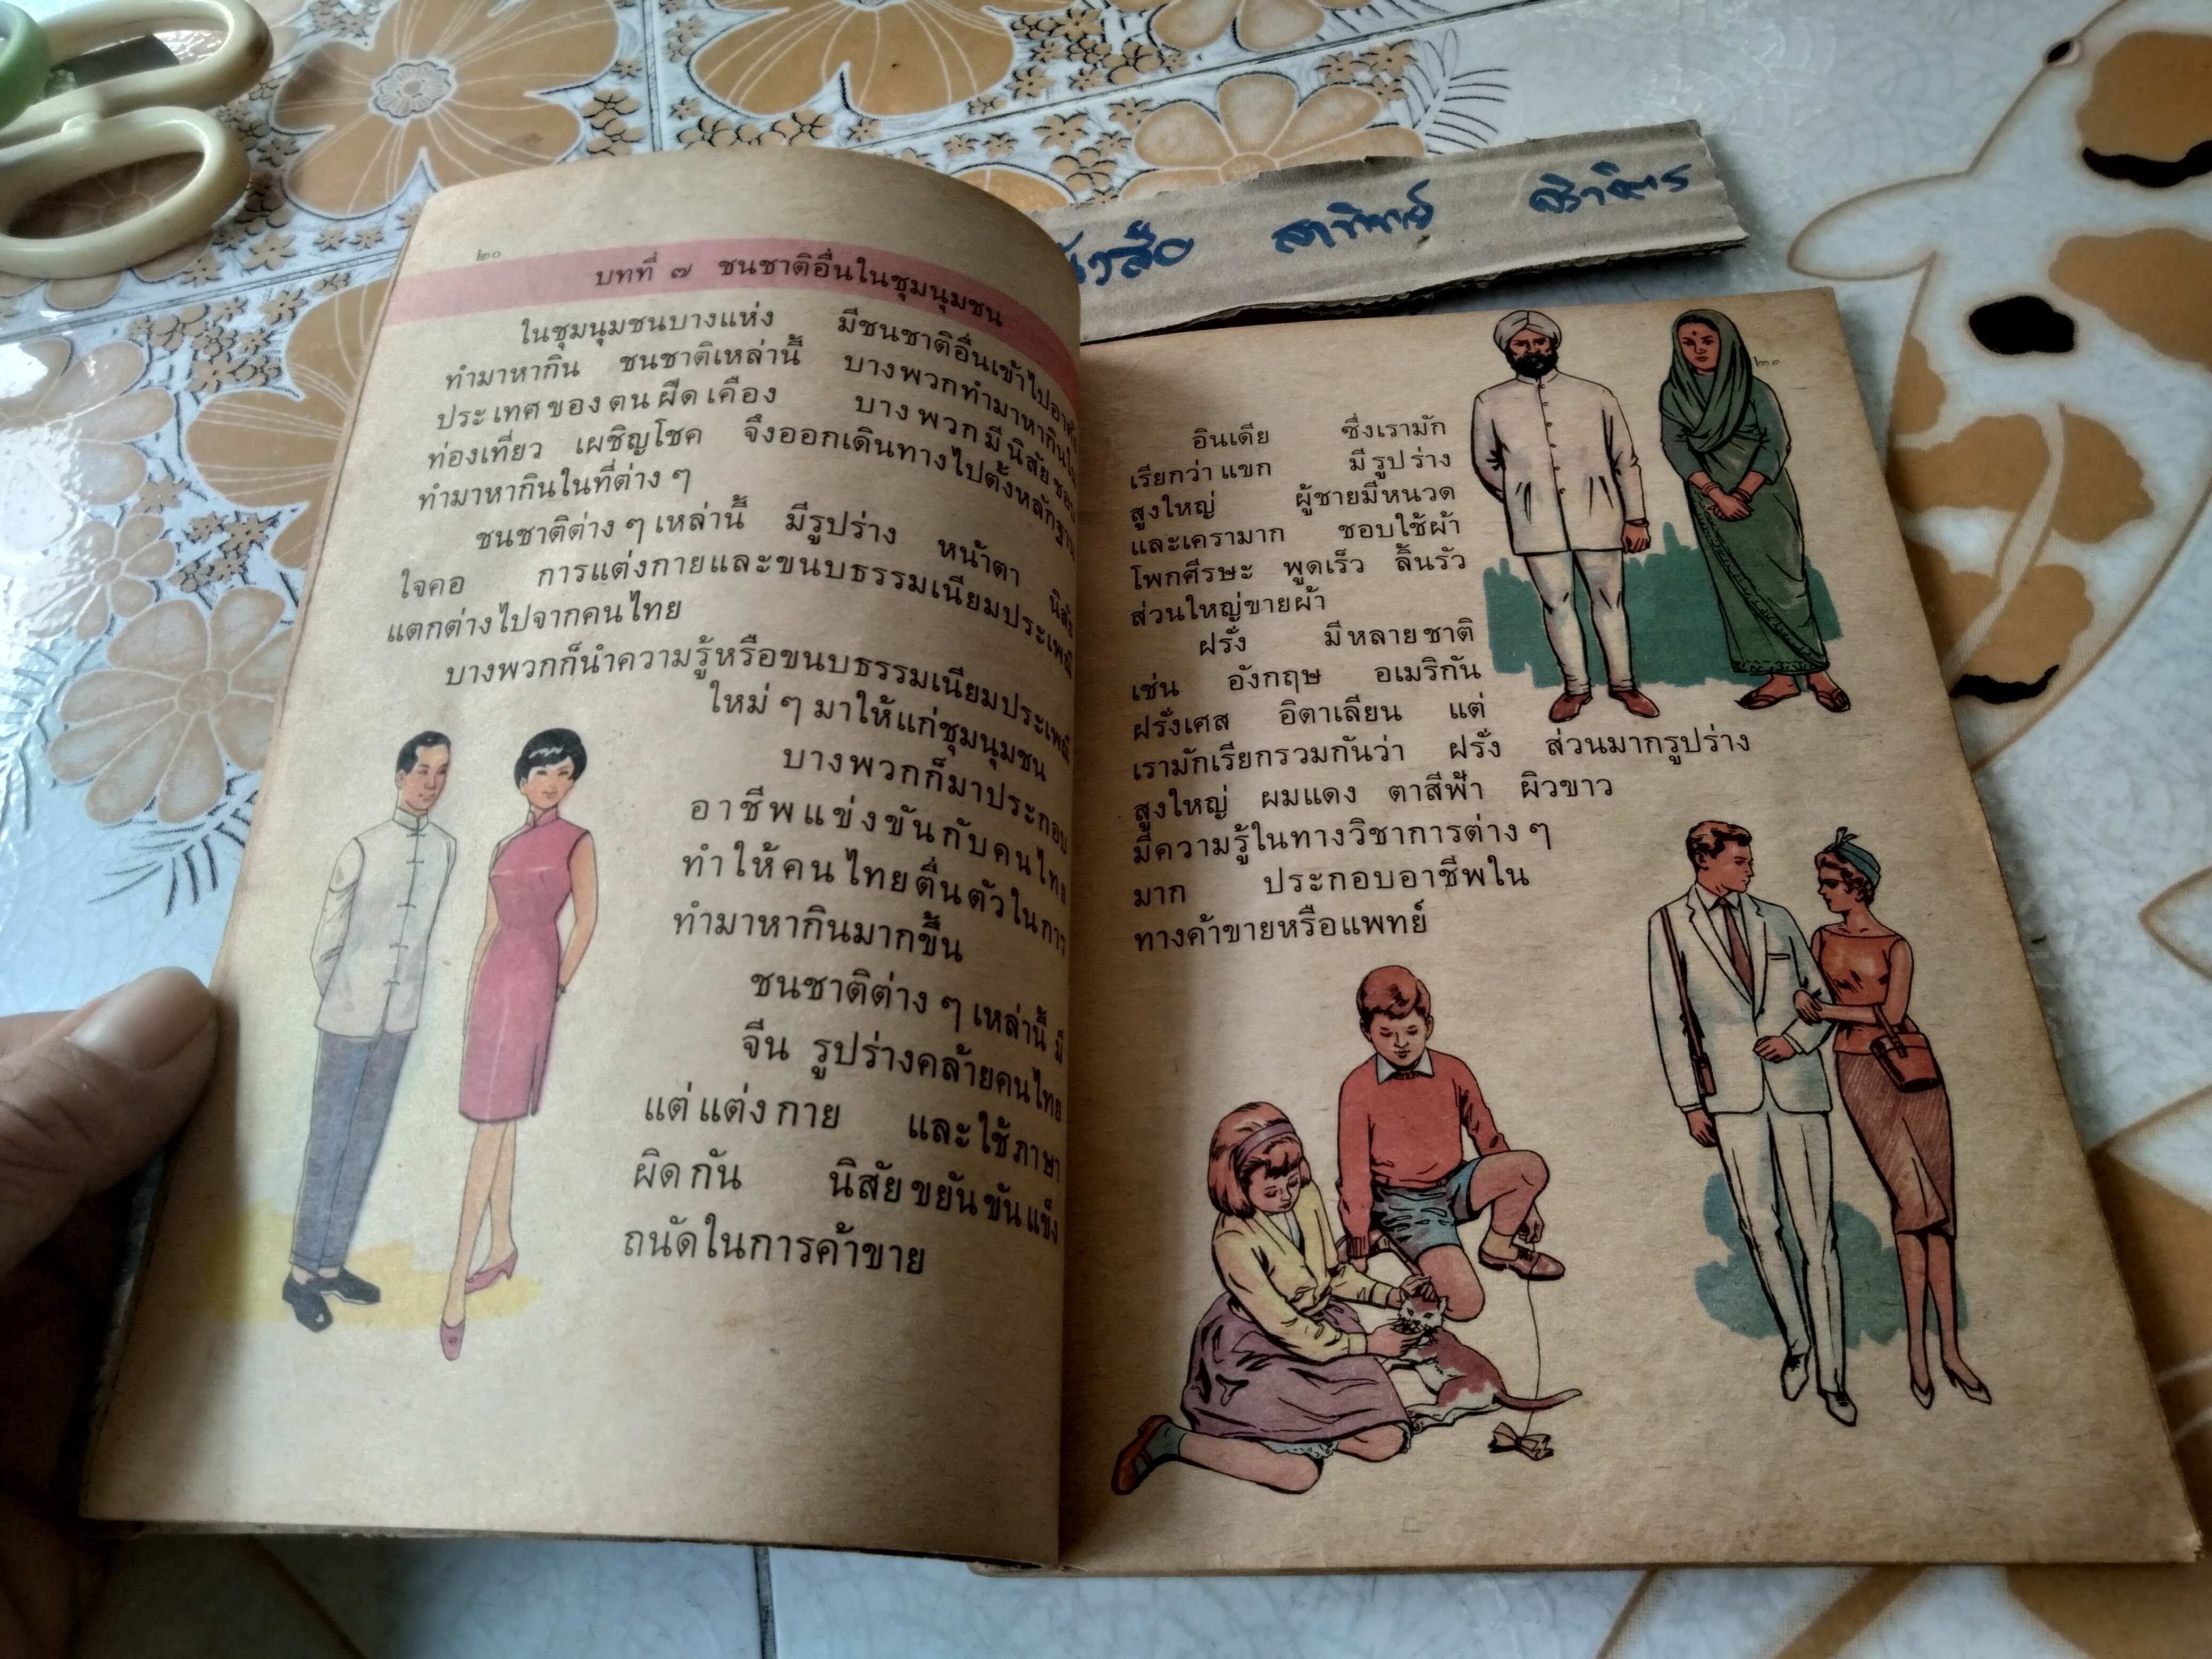 ๒๐
บทที่ ๗ ชนชาติอื่นในชุมนุมชน
ในชุมนุมชนบางแห่ง มีชนชาติอื่นเข้าไปอาศัย
ทำมาหากิน ชนชาติเหล่านี้ บางพวกทำมาหากินใน
ประเทศของตนฝืดเคือง บางพวกมีนิสัยชอบ
ท่องเที่ยว เผชิญโชค จึงออกเดินทางไปตั้งหลักฐาน
ทำมาหากินในที่ต่าง ๆ
ชนชาติต่าง ๆ เหล่านี้ มีรูปร่าง หน้าตา นิสัย
ใจคอ การแต่งกายและขนบธรรมเนียมประเพณี
แตกต่างไปจากคนไทย
บางพวกก็นำความรู้หรือขนบธรรมเนียมประเพณี
ใหม่ ๆ มาให้แก่ชุมนุมชน
บางพวกก็มาประกอบ
อาชีพแข่งขันกับคนไทย
ทำให้คนไทยตื่นตัวในการ
ทำมาหากินมากขึ้น
ชนชาติต่าง ๆ เหล่านี้ มี
จีน รูปร่างคล้ายคนไทย
แต่แต่งกาย และใช้ภาษา
ผิดกัน นิสัยขยันขันแข็ง
ถนัดในการค้าขาย
๒๑
อินเดีย ซึ่งเรามัก
เรียกว่าแขก มีรูปร่าง
สูงใหญ่ ผู้ชายมีหนวด
และเครามาก ชอบใช้ผ้า
โพกศีรษะ พูดเร็ว ลิ้นรัว
ส่วนใหญ่ขายผ้า
ฝรั่ง มีหลายชาติ
เช่น อังกฤษ อเมริกัน
ฝรั่งเศส อิตาเลียน แต่
เรามักเรียกรวมกันว่า ฝรั่ง ส่วนมากรูปร่าง
สูงใหญ่ ผมแดง ตาสีฟ้า ผิวขาว
มีความรู้ในทางวิชาการต่าง ๆ
มาก ประกอบอาชีพใน
ทางค้าขายหรือแพทย์